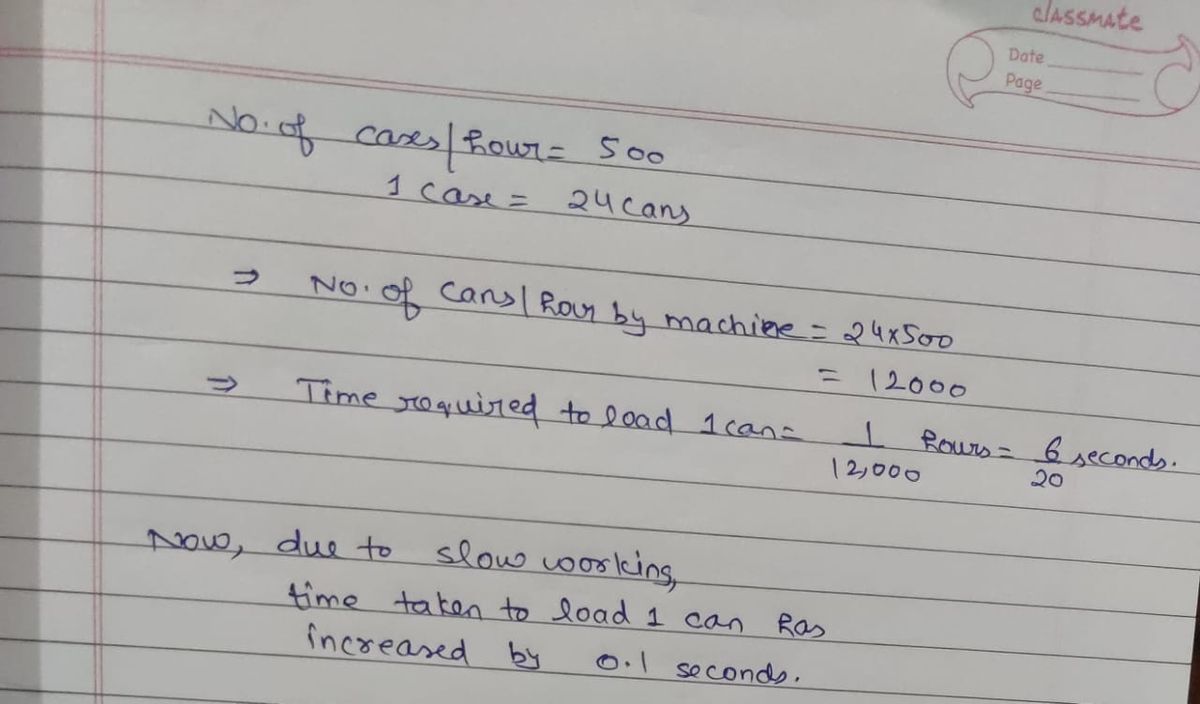 classmate
Date
Page
No. of cases/hour = 500
1 case = 24 cans
⇒ No. of cans/hour by machine = 24x500
= 12000
⇒ Time required to load 1 can = 1/12,000 hours = 6/20 seconds.
Now, due to slow working,
time taken to load 1 can has
increased by 0.1 seconds.